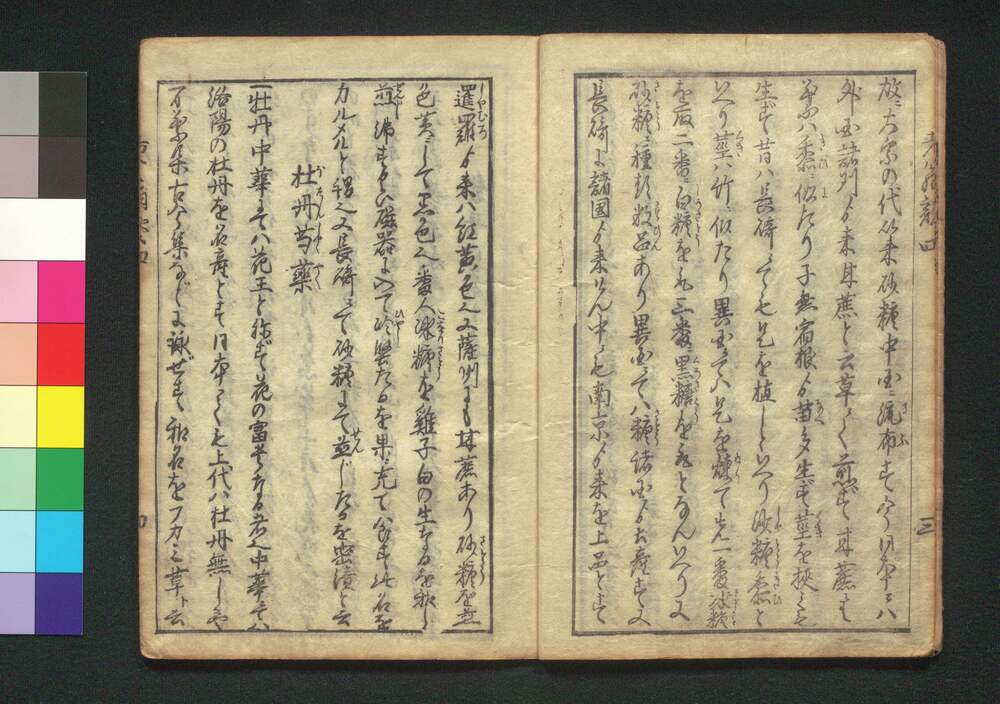 故ニ大宗の代以来砂糖中国ニ流布す今日本ニハ
外国諸州より来甘蔗と云草にて煎ず甘蔗は
葉ハ黍ニ似たり子無宿根より苗多生ず茎を挟て
生ず昔ハ長崎にても是を植しといへり沙糖黍と
いへり茎ハ竹ニ似たり異国にてハ是を煉て先一番氷糖
を取二番ニ白糖を取三番黒糖を取となんいへり又
砂糖種類数品あり異国にてハ糖諸国より出産す又
長崎に諸国より来りけん中にも南京より来を上品とす
暹羅より来ハ紅黄色又薩州にも甘蔗あり砂糖を煎
色黄にして黒色又蛮人氷糖を雞子白の生なるを和し
煎沸す又磁器に入て冷堅たるを果ニ充て食す其名を
カルメルと称又長崎にて砂糖にて煎じたるを蜜漬と云
牡丹芍薬
一牡丹中華にてハ花王と称す花の富貴なる者也中華にてハ
洛陽の牡丹を名産とす日本にても上代ハ牡丹無しや
万葉集古今集などに詠せず和名をフカミ草ト云